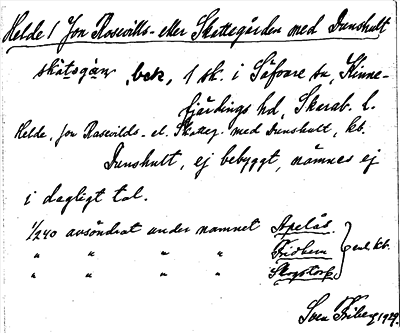 Helde 1 Jon Rosevills- eller Skattegården med Dunshult
skåtsgån, bek, 1 sk. i Säfvare sn, Kinne-
fjärdings hd, Skarab. l.
Helde, Jon Rasevilds- el. Skatteg. med Dunshult, kb.
Dunshult, ej bebyggt, nämnes ej
i dagligt tal.
1/240 avsöndrat under namnet Apelås
" " " " Fridhem } enl. kb.
" " " " Skogstorp
Sven Friberg 1929.